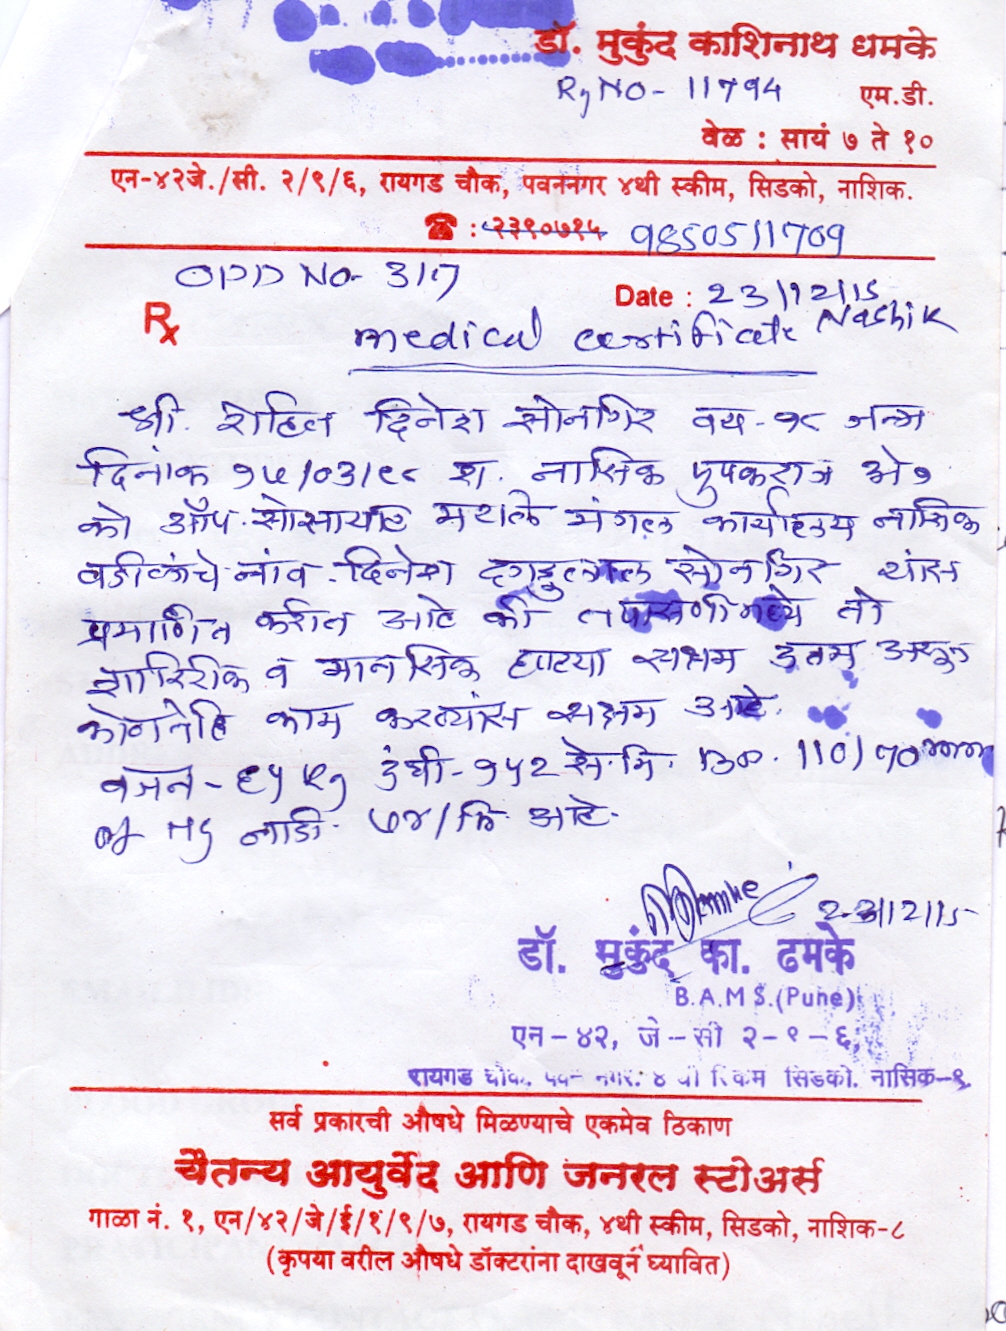 डॉ. मुकुंद काशिनाथ धमके
Rg NO - 11794 एम.डी.
वेळ : सायं ७ ते १०
एन-४२जे./सी. २/९/६, रायगड चौक, पवननगर ४थी स्कीम, सिडको, नाशिक.
☎ : २३९०७१५ 9850511709
OPD NO- 317
Date : 23/12/15
Rx Nashik
medical certificate
श्री. रोहित दिनेश सोनगिर वय - १८ जन्म
दिनांक १५/०३/९८ रा. नासिक पुष्पकराज अे १
को ऑप. सोसायटि मराठे मंगल कार्यालय नासिक
वडीलांचे नांव. दिनेश दगडुलाल सोनगिर यांस
प्रमाणित करीत आहे की तपासणीमध्ये तो
शारिरीक व मानसिक दृष्टया सक्षम उत्तम असून
कोणतेहि काम करण्यास सक्षम आहे.
वजन - ६५ kg उंची - १५२ से.मि. B.P. 110/70 mm
of Hg नाडी. ७४/मि. आहे.
23/12/15
डॉ. मुकुंद का. ढमके
B.A.M.S.(Pune)
एन - ४२, जे - सी २ - ९ - ६,
रायगड चौक, पवन नगर. ४ थी स्किम सिडको. नासिक-९
सर्व प्रकारची औषधे मिळण्याचे एकमेव ठिकाण
चैतन्य आयुर्वेद आणि जनरल स्टोअर्स
गाळा नं. १, एन/४२/जे/ई/१/९/७, रायगड चौक, ४थी स्कीम, सिडको, नाशिक-८
(कृपया वरील औषधे डॉक्टरांना दाखवून घ्यावित)